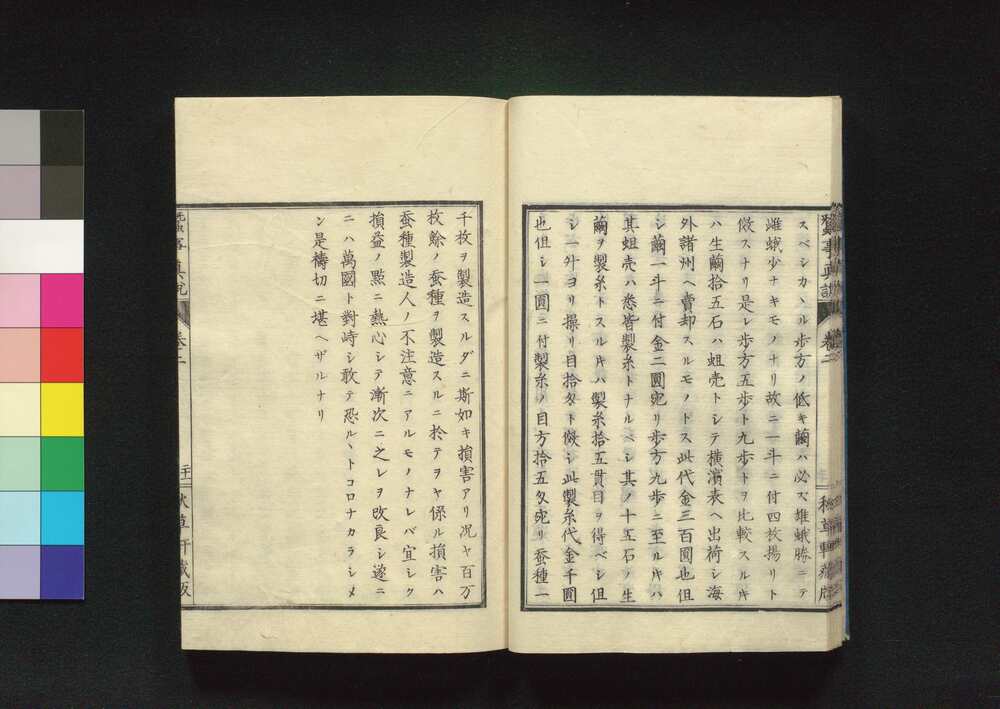 スベシカヽル歩方ノ低キ繭ハ必ズ雄蛾勝ニテ
雌蛾少ナキモノナリ故ニ一斗ニ付四枚揚リト
做スナリ是レ歩方五歩ト九歩トヲ比較スルキ
ハ生繭拾五石ハ蛆壳トシテ横濱表ヘ出荷シ海
外諸州ヘ賣却スルモノトス此代金三百圓也但
シ繭一斗ニ付金二圓宛リ歩方九歩ニ至ルキハ
其蛆壳ハ悉皆製糸トナルベシ其ノ十五石ノ生
繭ヲ製糸トスルキハ製糸拾五貫目ヲ得ベシ但
シ一舛ヨリ操リ目拾匁ト做シ此製糸代金千圓
也但シ一圓ニ付製糸ノ目方拾五匁宛リ蚕種一
千枚ヲ製造スルダニ斯如キ損害アリ况ヤ百万
枚餘ノ蚕種ヲ製造スルニ於テヲヤ係ル損害ハ
蚕種製造人ノ不注意ニアルモノナレバ宜シク
損益ノ㸃ニ熱心シテ漸次ニ之レヲ改良シ遂ニ
ニハ萬國ト對峙シ敢テ恐ルヽトコロナカラシメ
ン是禱切ニ堪ヘザルナリ
卷二
二十一